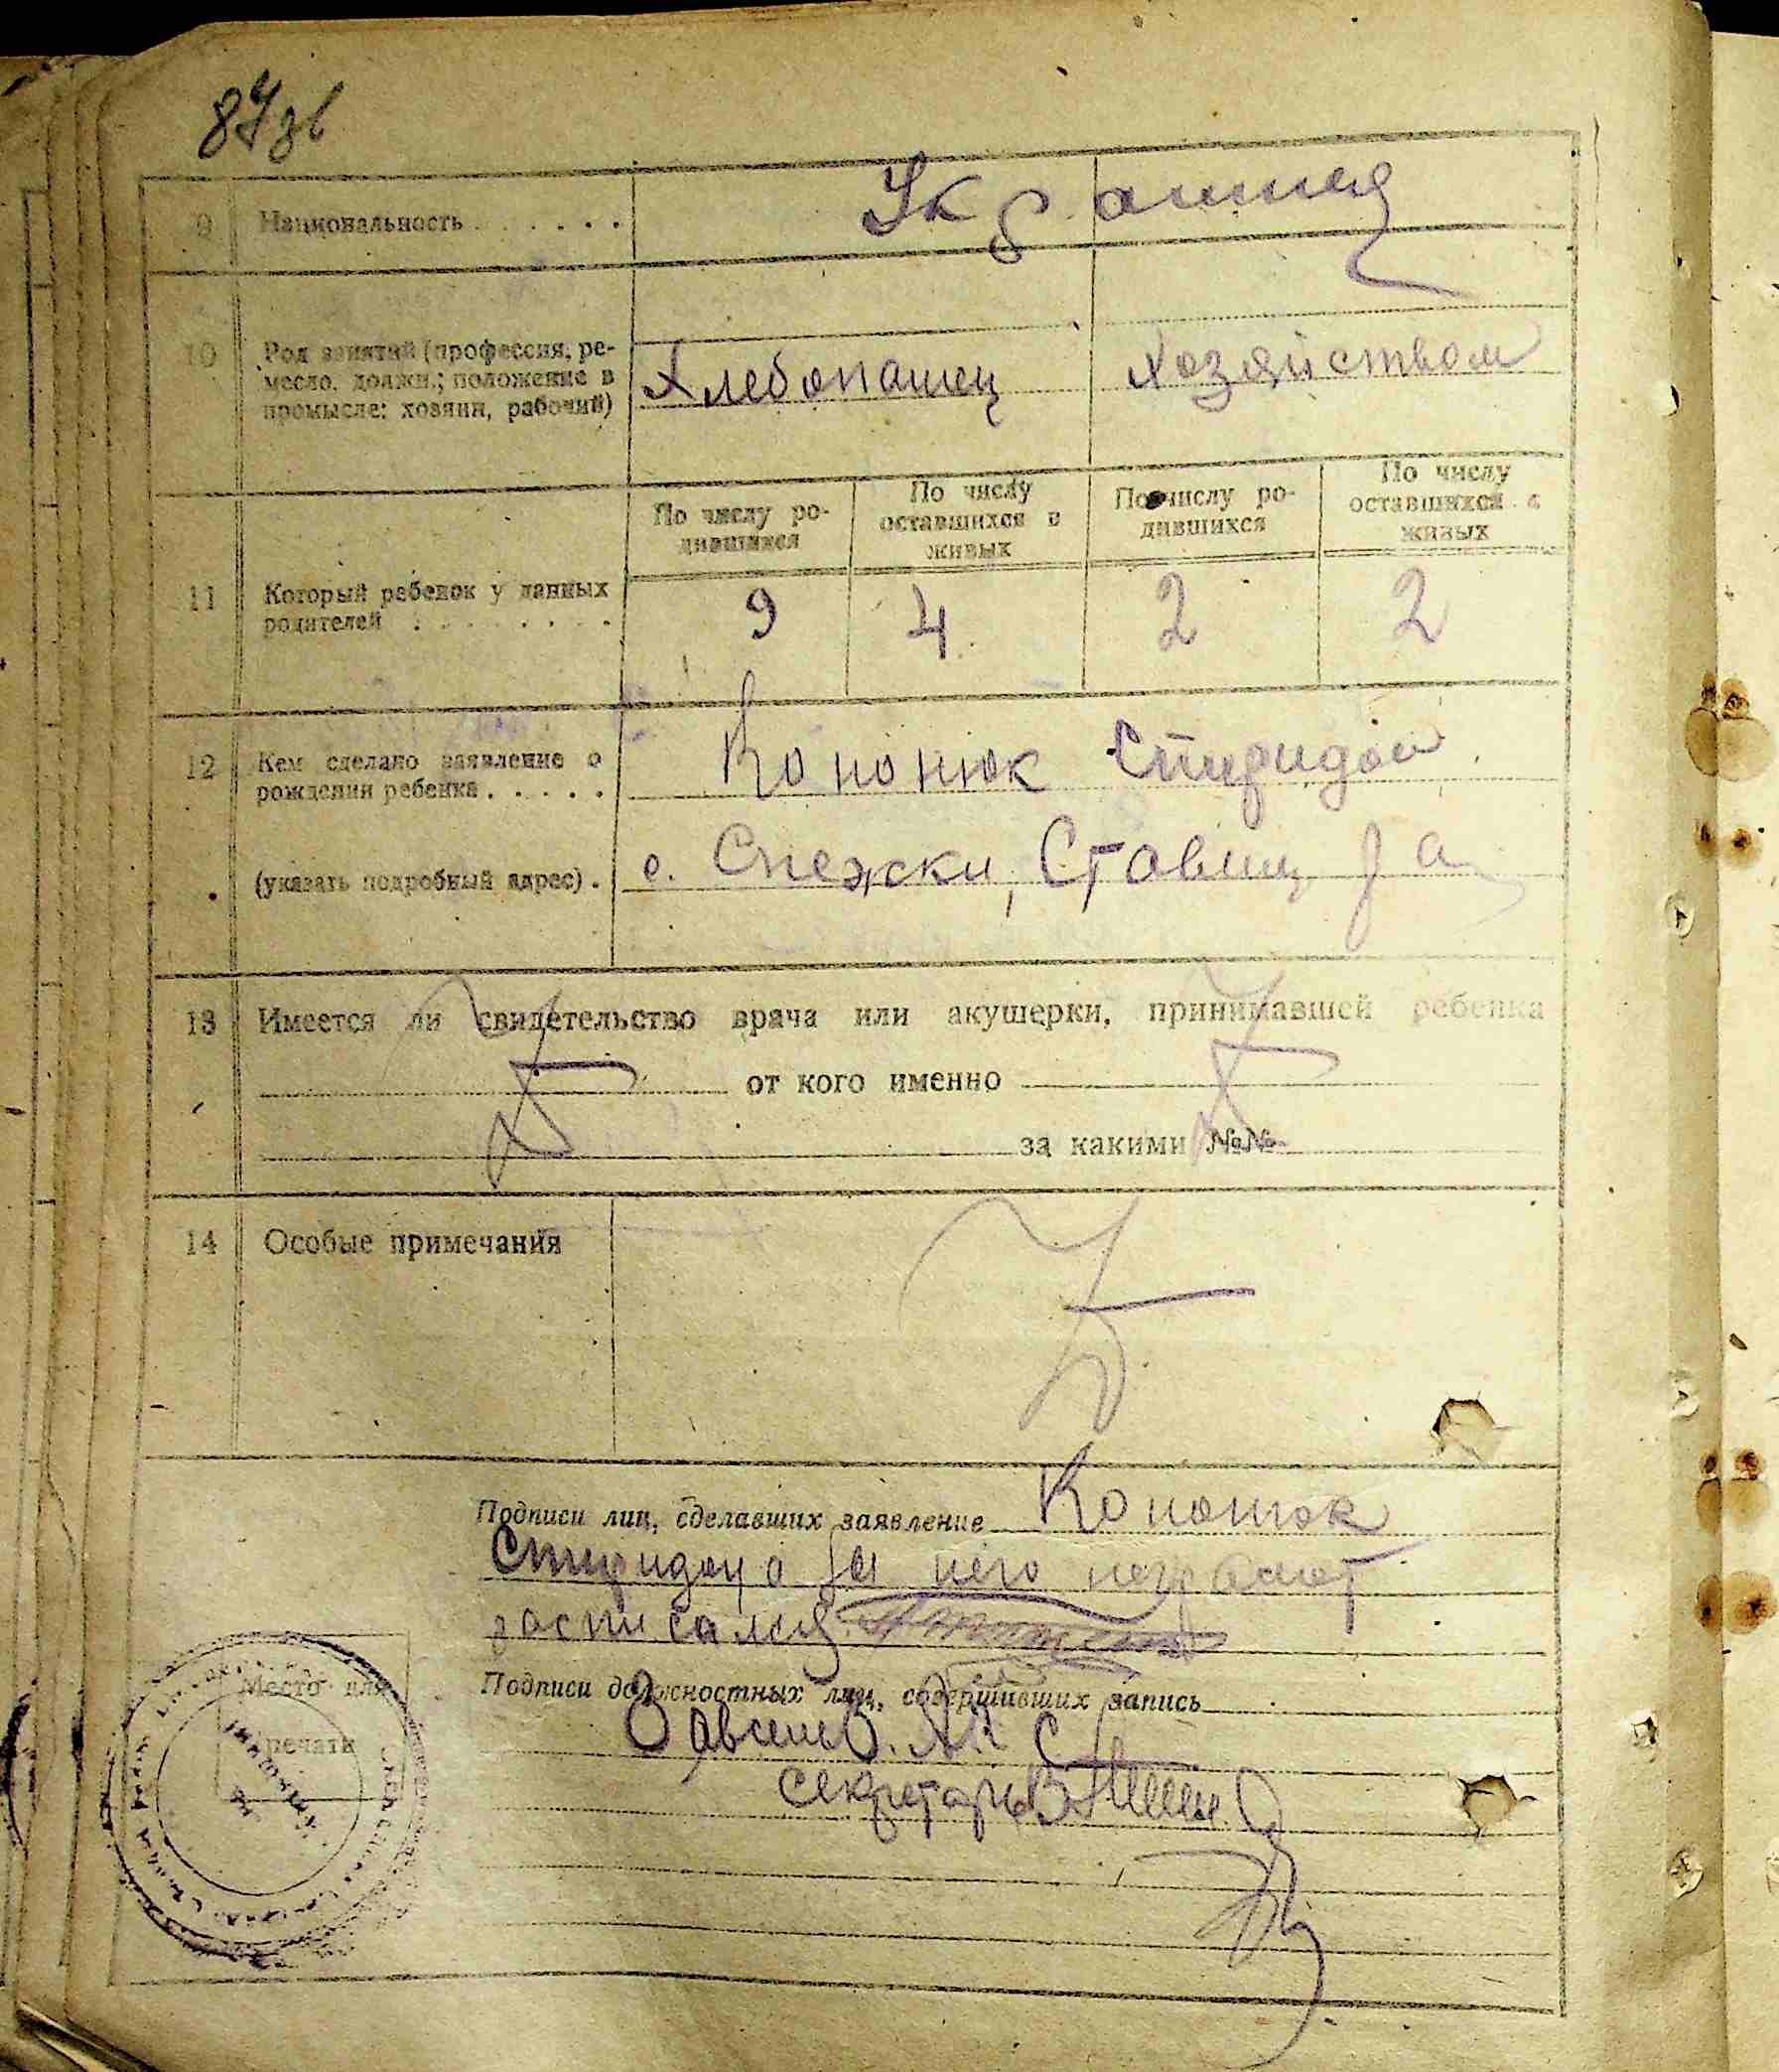 87зв
9 Национальность . . . . . . Украинец
10 Род занятий (профессия, ре-
месло, должн.; положение в
промысле: хозяин, рабочий)
Хлебопашец Хозяйством
По числу ро-
дившихся
По числу
оставшихся в
живых
По числу ро-
дившихся
По числу
оставшихся в
живых
11 Который ребенок у данных
родителей . . . . . . . .
9 4 2 2
12 Кем сделано заявление о
рождении ребенка . . . . .
Кононюк Спиридон
(указать подробный адрес) . с. Снежки, Ставищ р а
13 Имеется ли свидетельство врача или акушерки, принимавшей ребенка
от кого именно
за какими №№
14 Особые примечания
Подписи лиц, сделавших заявление Кононюк
Спиридон а за него неграмот
росписался
Место для
печати
Подписи должностных лиц, совершивших запись
секретарь